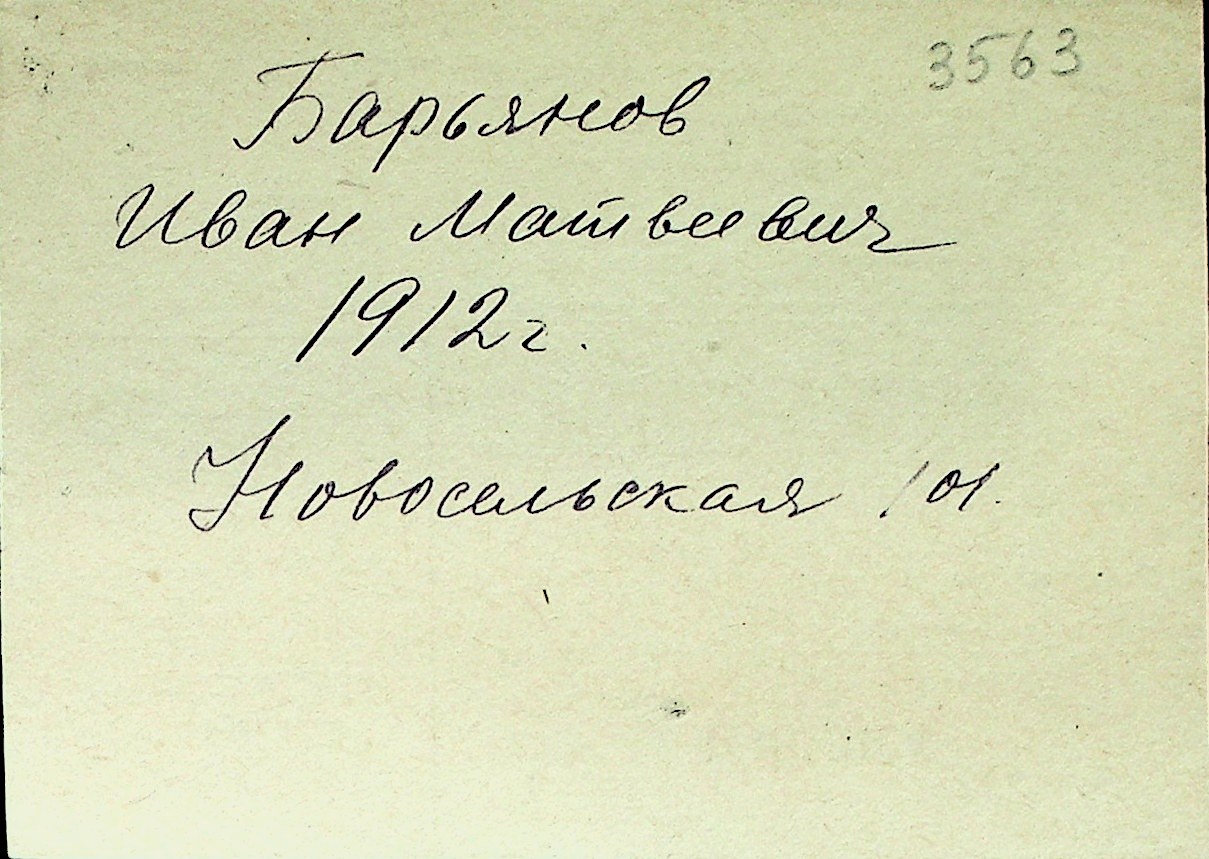 3563
Барьянов
Иван Матвеевич
1912 г.
Новосельская 101.